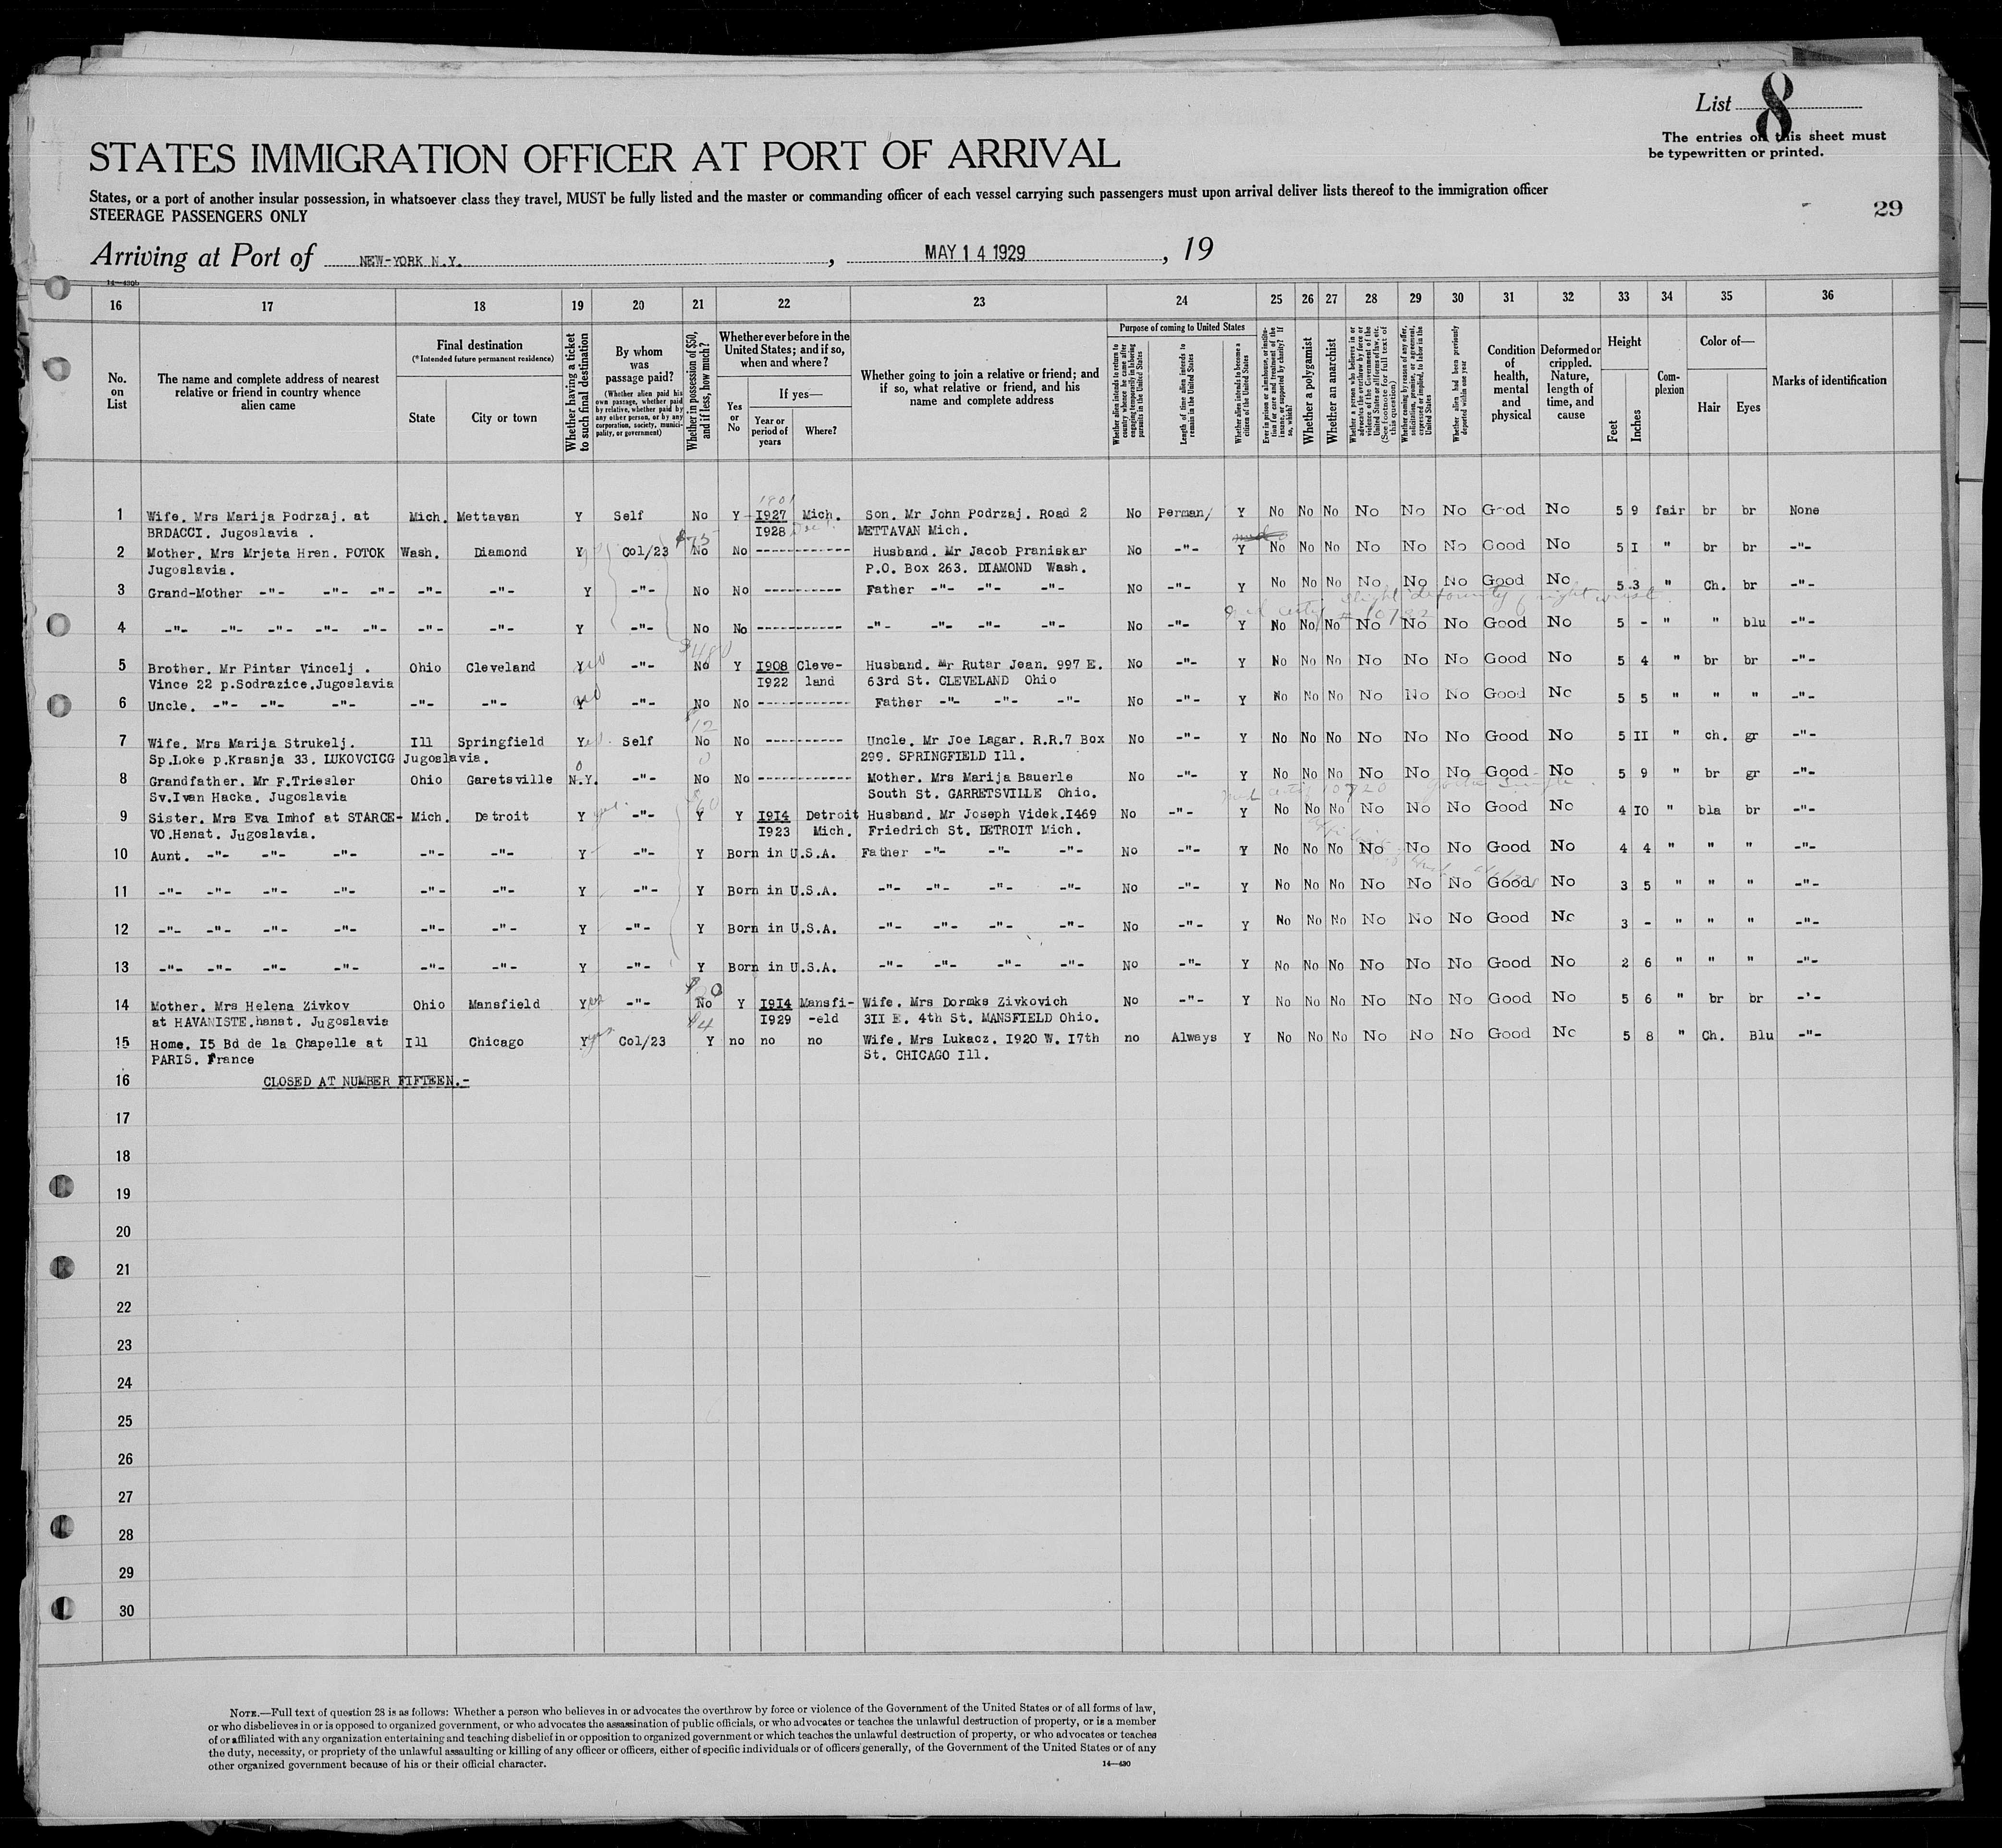 List 8
The entries on this sheet must
be typewritten or printed.
STATES IMMIGRATION OFFICER AT PORT OF ARRIVAL
States, or a port of another insular possession, in whatsoever class they travel, MUST be fully listed and the master or commanding officer of each vessel carrying such passengers must upon arrival deliver lists thereof to the immigration officer
STEERAGE PASSENGERS ONLY
29
Arriving at Port of NEW-YORK N.Y. , MAY 14 1929 , 19
14—430b
16 17 18 19 20 21 22 23 24 25 26 27 28 29 30 31 32 33 34 35 36
No. on List
The name and complete address of nearest relative or friend in country whence alien came
Final destination
(*Intended future permanent residence)
State
City or town
Whether having a ticket to such final destination
By whom was passage paid?
(Whether alien paid his own passage, whether paid by relative, whether paid by any other person, or by any corporation, society, municipality, or government)
Whether in possession of $50, and if less, how much?
Whether ever before in the United States; and if so, when and where?
Yes or No
If yes—
Year or period of years
Where?
Whether going to join a relative or friend; and if so, what relative or friend, and his name and complete address
Purpose of coming to United States
Whether alien intends to return to country whence he came after engaging temporarily in laboring pursuits in the United States
Length of time alien intends to remain in the United States
Whether alien intends to become a citizen of the United States
Ever in prison or almshouse, or institution for care and treatment of the insane, or supported by charity? If so, which?
Whether a polygamist
Whether an anarchist
Whether a person who believes in or advocates the overthrow by force or violence of the Government of the United States or all forms of law, etc. (See footnote for full text of this question)
Whether coming by reason of any offer, solicitation, promise, or agreement, expressed or implied, to labor in the United States
Whether alien had been previously deported within one year
Condition of health, mental and physical
Deformed or crippled. Nature, length of time, and cause
Height
Feet
Inches
Complexion
Color of—
Hair
Eyes
Marks of identification
1 Wife. Mrs Marija Podrzaj. at Mich. Mettavan Y Self No Y 1927 Mich. Son. Mr John Podrzaj. Road 2 No Perman/ Y No No No No No No Good No 5 9 fair br br None
BRDACCI. Jugoslavia . 1928 METTAVAN Mich.
2 Mother. Mrs Mrjeta Hren. POTOK Wash. Diamond Y Col/23 $75 No No ------------ Husband. Mr Jacob Praniskar No -"- Y No No No No No No Good No 5 I " br br -"-
Jugoslavia. P.O. Box 263. DIAMOND Wash.
3 Grand-Mother -"- -"- -"- -"- -"- Y -"- No No ---------- Father -"- -"- -"- No -"- Y No No No No No No Good No 5 3 " Ch. br -"-
slight deformity of right wrist
4 -"- -"- -"- -"- -"- -"- -"- Y -"- No No ------------ -"- -"- -"- -"- No -"- Y No No No No No No Good No 5 - " " blu -"-
5 Brother. Mr Pintar Vincelj . Ohio Cleveland Y -"- No Y I908 Cleve- Husband. Mr Rutar Jean. 997 E. No -"- Y No No No No No No Good No 5 4 " br br -"-
Vince 22 p.Sodrazice.Jugoslavia I922 land 63rd St. CLEVELAND Ohio
6 Uncle. -"- -"- -"- -"- -"- Y -"- No No ------------ Father -"- -"- -"- No -"- Y No No No No No No Good No 5 5 " " " -"-
7 Wife. Mrs Marija Strukelj. Ill Springfield Yes. Self 12 No No ---------- Uncle. Mr Joe Lagar. R.R.7 Box No -"- Y No No No No No No Good No 5 II " ch. gr -"-
Sp.Loke p.Krasnja 33. LUKOVCICG Jugoslavia. 299. SPRINGFIELD Ill.
8 Grandfather. Mr F.Triesler Ohio Garetsville N.Y. -"- No No ------------ Mother. Mrs Marija Bauerle No -"- Y No No No No No No Good No 5 9 " br gr -"-
Sv.Ivan Hacka. Jugoslavia South St. GARRETSVILLE Ohio.
9 Sister. Mrs Eva Imhof at STARCE- Mich. Detroit Y -"- Y Y I9I4 Detroit Husband. Mr Joseph Videk.I469 No -"- Y No No No No No No Good No 4 IO " bla br -"-
VO.Hanat. Jugoslavia. I923 Mich. Friedrich St. DETROIT Mich.
10 Aunt. -"- -"- -"- -"- -"- Y -"- Y Born in U.S.A. Father -"- -"- -"- No -"- Y No No No No No No Good No 4 4 " " " -"-
11 -"- -"- -"- -"- -"- -"- Y -"- Y Born in U.S.A. -"- -"- -"- -"- No -"- Y No No No No No No Good No 3 5 " " " -"-
12 -"- -"- -"- -"- -"- -"- Y -"- Y Born in U.S.A. -"- -"- -"- -"- No -"- Y No No No No No No Good No 3 - " " " -"-
13 -"- -"- -"- -"- -"- -"- Y -"- Y Born in U.S.A. -"- -"- -"- -"- No -"- Y No No No No No No Good No 2 6 " " " -"-
14 Mother. Mrs Helena Zivkov Ohio Mansfield Y -"- No Y I9I4 Mansfi- Wife. Mrs Dormks Zivkovich No -"- Y No No No No No No Good No 5 6 " br br -'-
at HAVANISTE.hanat. Jugoslavia I929 -eld 3II E. 4th St. MANSFIELD Ohio.
15 Home. I5 Bd de la Chapelle at Ill Chicago Y Col/23 $4 Y no no no Wife. Mrs Lukacz. I920 W. I7th no Always Y No No No No No No Good No 5 8 " Ch. Blu -"-
PARIS. France St. CHICAGO Ill.
16 CLOSED AT NUMBER FIFTEEN.-
17
18
19
20
21
22
23
24
25
26
27
28
29
30
NOTE.—Full text of question 28 is as follows: Whether a person who believes in or advocates the overthrow by force or violence of the Government of the United States or of all forms of law,
or who disbelieves in or is opposed to organized government, or who advocates the assassination of public officials, or who advocates or teaches the unlawful destruction of property, or is a member
of or affiliated with any organization entertaining and teaching disbelief in or opposition to organized government or which teaches the unlawful destruction of property, or who advocates or teaches
the duty, necessity, or propriety of the unlawful assaulting or killing of any officer or officers, either of specific individuals or of officers generally, of the Government of the United States or of any
other organized government because of his or their official character.
14—430